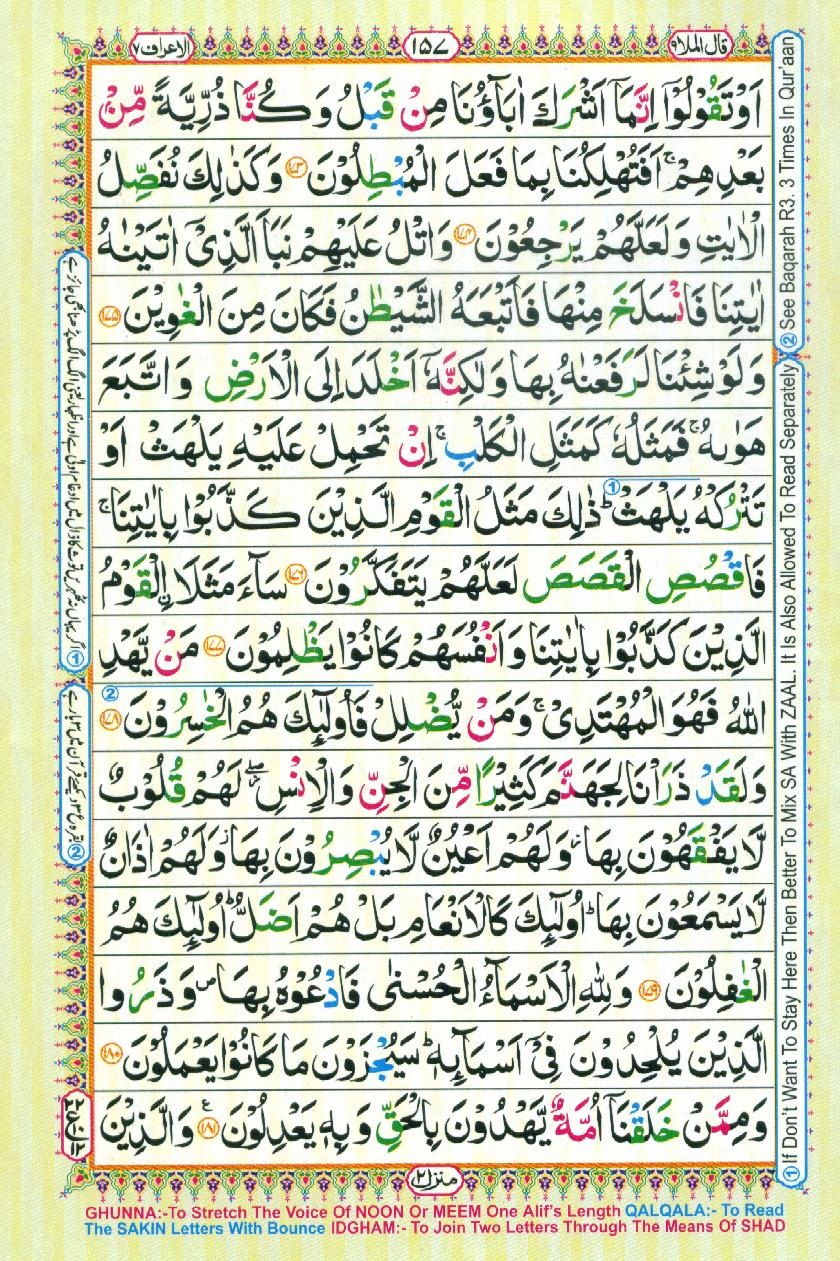 الاعراف ٧
١٥٧
قال الملا ٩
اَوْ تَقُوْلُوْۤا اِنَّمَاۤ اَشْرَكَ اٰبَآؤُنَا مِنْ قَبْلُ وَكُنَّا ذُرِّيَّةً مِّنْۢ
بَعْدِهِمْ ۚ اَفَتُهْلِكُنَا بِمَا فَعَلَ الْمُبْطِلُوْنَ ﴿۱۷۳﴾ وَكَذٰلِكَ نُفَصِّلُ
الْاٰيٰتِ وَلَعَلَّهُمْ يَرْجِعُوْنَ ﴿۱۷۴﴾ وَاتْلُ عَلَيْهِمْ نَبَاَ الَّذِيْۤ اٰتَيْنٰهُ
اٰيٰتِنَا فَانْسَلَخَ مِنْهَا فَاَتْبَعَهُ الشَّيْطٰنُ فَكَانَ مِنَ الْغٰوِيْنَ ﴿۱۷۵﴾
وَلَوْ شِئْنَا لَرَفَعْنٰهُ بِهَا وَلٰكِنَّهٗۤ اَخْلَدَ اِلَى الْاَرْضِ وَاتَّبَعَ
هَوٰىهُ ۚ فَمَثَلُهٗ كَمَثَلِ الْكَلْبِ ۚ اِنْ تَحْمِلْ عَلَيْهِ يَلْهَثْ اَوْ
تَتْرُكْهُ يَلْهَثْ ① ؕ ذٰلِكَ مَثَلُ الْقَوْمِ الَّذِيْنَ كَذَّبُوْا بِاٰيٰتِنَا ۚ
فَاقْصُصِ الْقَصَصَ لَعَلَّهُمْ يَتَفَكَّرُوْنَ ﴿۱۷۶﴾ سَآءَ مَثَلَا اۨلْقَوْمُ
الَّذِيْنَ كَذَّبُوْا بِاٰيٰتِنَا وَاَنْفُسَهُمْ كَانُوْا يَظْلِمُوْنَ ﴿۱۷۷﴾ مَنْ يَّهْدِ
اللّٰهُ فَهُوَ الْمُهْتَدِيْ ۚ وَمَنْ يُّضْلِلْ فَاُولٰٓئِكَ هُمُ الْخٰسِرُوْنَ ② ﴿۱۷۸﴾
وَلَقَدْ ذَرَاْنَا لِجَهَنَّمَ كَثِيْرًا مِّنَ الْجِنِّ وَالْاِنْسِ ۖ لَهُمْ قُلُوْبٌ
لَّا يَفْقَهُوْنَ بِهَا ؗ وَلَهُمْ اَعْيُنٌ لَّا يُبْصِرُوْنَ بِهَا ؗ وَلَهُمْ اٰذَانٌ
لَّا يَسْمَعُوْنَ بِهَا ؕ اُولٰٓئِكَ كَالْاَنْعَامِ بَلْ هُمْ اَضَلُّ ؕ اُولٰٓئِكَ هُمُ
الْغٰفِلُوْنَ ﴿۱۷۹﴾ وَلِلّٰهِ الْاَسْمَآءُ الْحُسْنٰى فَادْعُوْهُ بِهَا ۪ وَذَرُوا
الَّذِيْنَ يُلْحِدُوْنَ فِيْۤ اَسْمَآئِهٖ ؕ سَيُجْزَوْنَ مَا كَانُوْا يَعْمَلُوْنَ ﴿۱۸۰﴾
وَمِمَّنْ خَلَقْنَاۤ اُمَّةٌ يَّهْدُوْنَ بِالْحَقِّ وَبِهٖ يَعْدِلُوْنَ ﴿۱۸۱﴾ ع وَالَّذِيْنَ
منزل ٢
① If Don't Want To Stay Here Then Better To Mix SA With ZAAL. It Is Also Allowed To Read Separately
② See Baqarah R3. 3 Times In Qur'aan
GHUNNA:-To Stretch The Voice Of NOON Or MEEM One Alif's Length QALQALA:- To Read
The SAKIN Letters With Bounce IDGHAM:- To Join Two Letters Through The Means Of SHAD